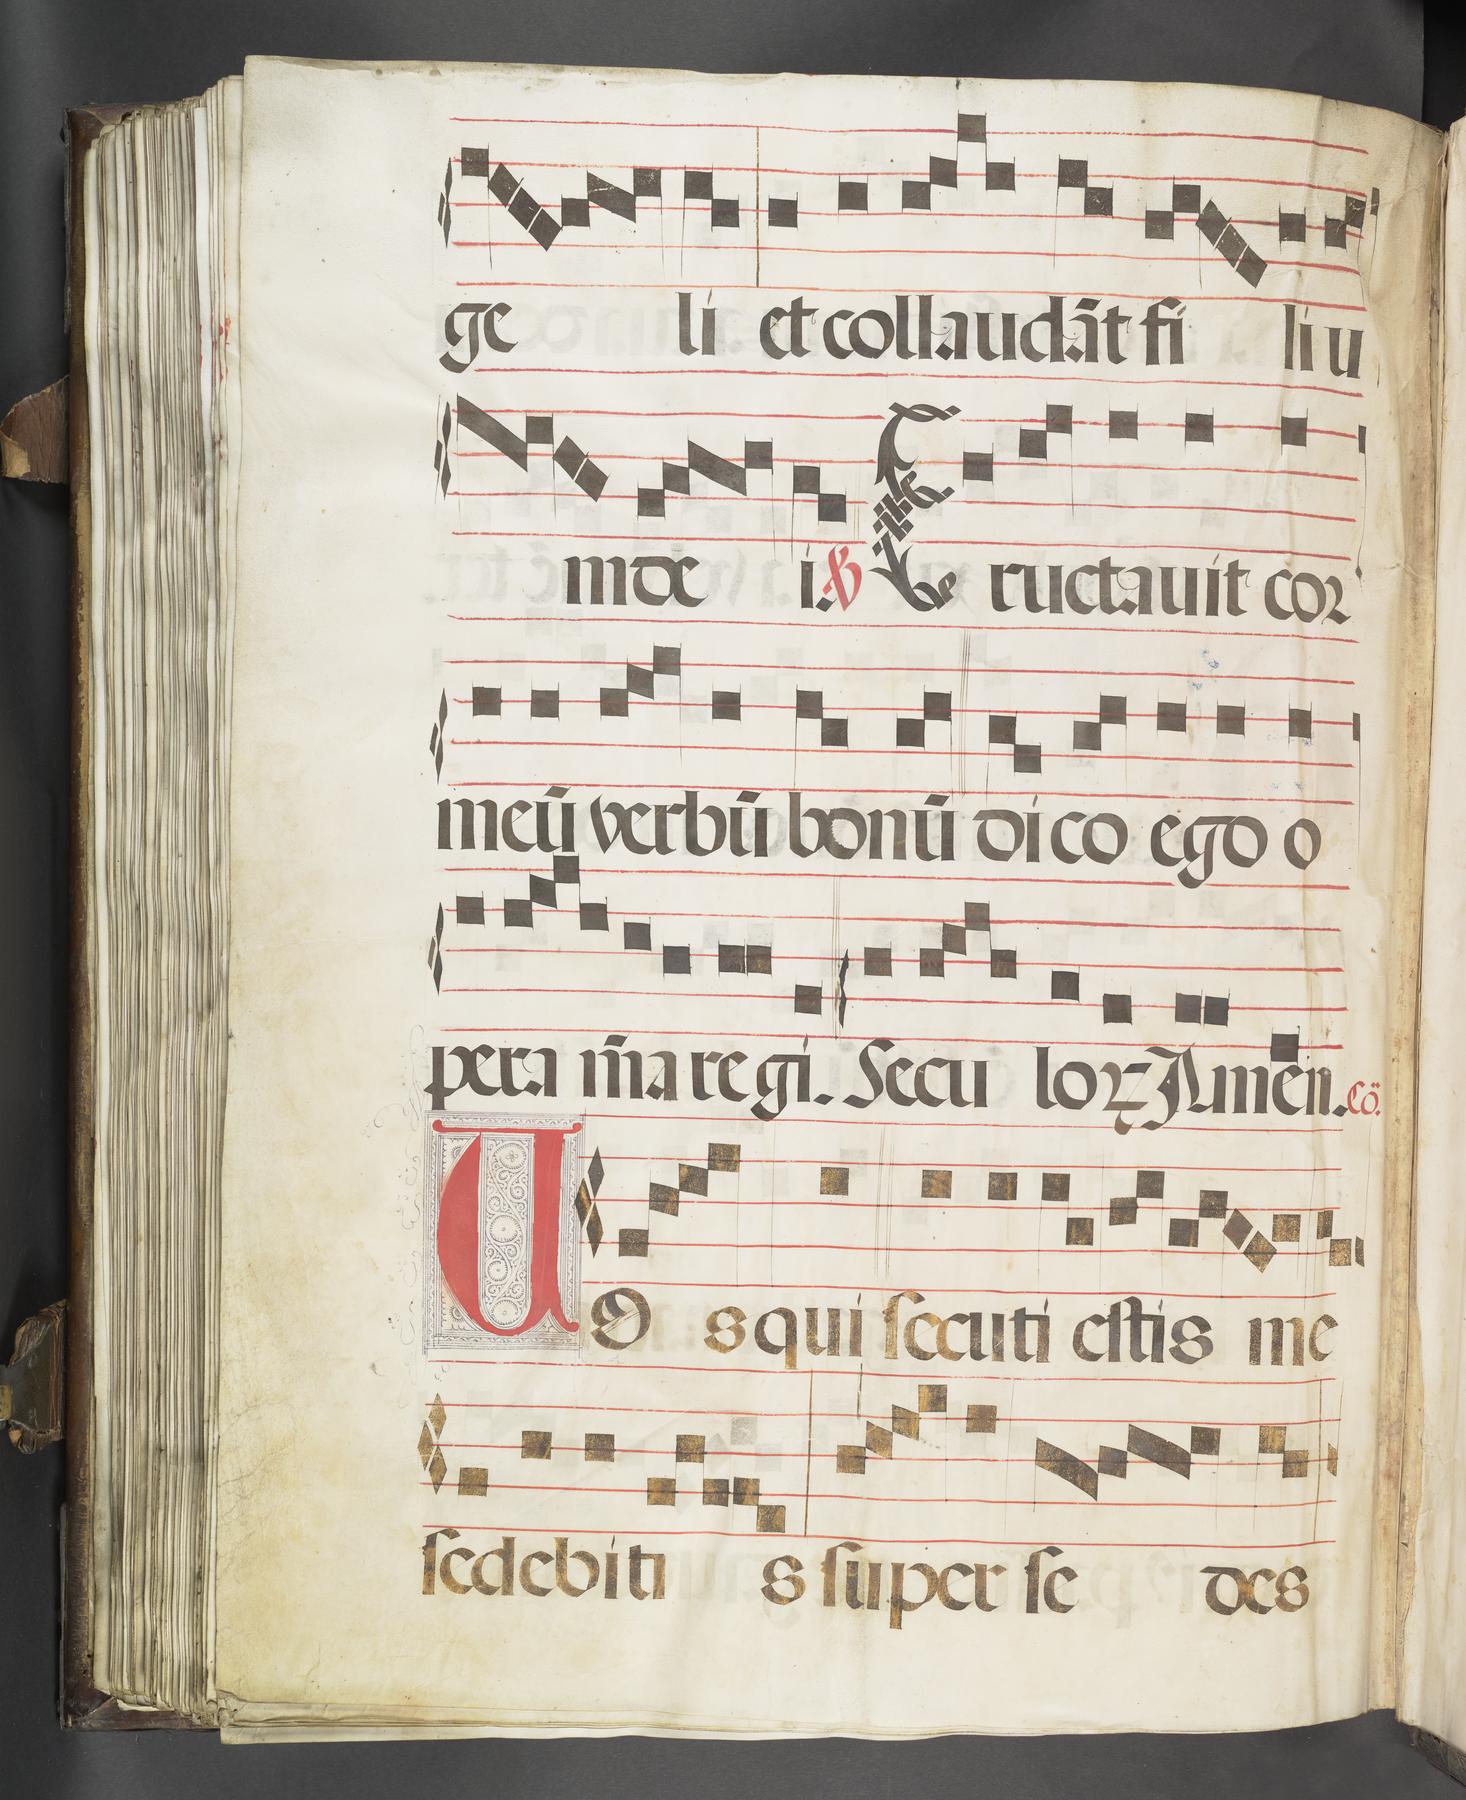 ge li et collaudāt fi li u
m de i. ℣ E ructauit cor
meū verbū bonū di co ego o
pera m̄a re gi. Secu loꝝ Amen. Cō.
V O s qui secuti estis me
sedebiti s super se des